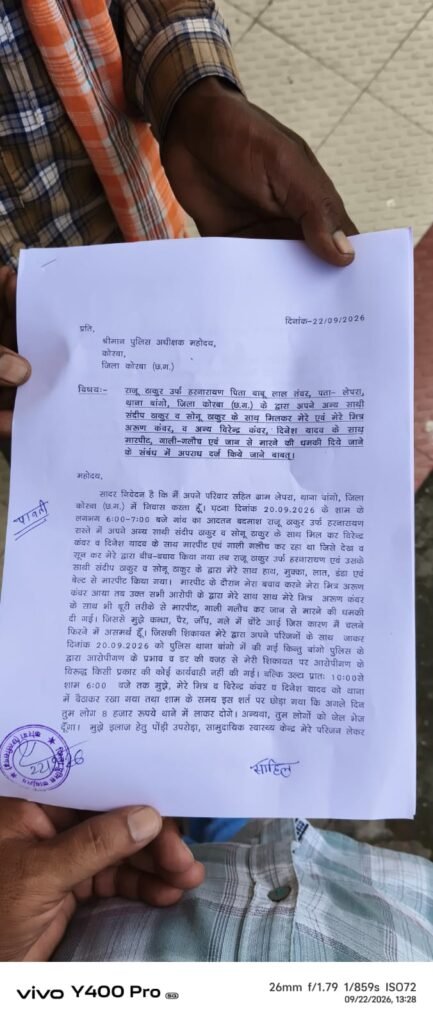 दिनांक-22/09/2026
प्रति,
श्रीमान पुलिस अधीक्षक महोदय,
कोरबा,
जिला कोरबा (छ.ग.)
विषयः- राजू ठाकुर उर्फ हरनारायण पिता बाबू लाल तंवर, पता- लेपरा,
थाना बांगो, जिला कोरबा (छ.ग.) के द्वारा अपने अन्य साथी
संदीप ठाकुर व सोनू ठाकुर के साथ मिलकर मेरे एवं मेरे मित्र
अरूण कंवर, व अन्य विरेन्द्र कंवर, दिनेश यादव के साथ
मारपीट, गाली-गलौच एवं जान से मारने की धमकी दिये जाने
के संबंध में अपराध दर्ज किये जाने बाबत्।
महोदय,
सादर निवेदन है कि मैं अपने परिवार सहित ग्राम लेपरा, थाना बांगो, जिला
कोरबा (छ.ग.) में निवास करता हूँ। घटना दिनांक 20.09.2026 के शाम के
लगभग 6:00-7:00 बजे गांव का आदतन बदमाश राजू ठाकुर उर्फ हरनारायण
रास्ते में अपने अन्य साथी संदीप ठाकुर व सोनू ठाकुर के साथ मिल कर विरेन्द्र
कंवर व दिनेश यादव के साथ मारपीट एवं गाली गलौच कर रहा था जिसे देख व
सुन कर मेरे द्वारा बीच-बचाव किया गया तब राजू ठाकुर उर्फ हरनारायण एवं उसके
साथी संदीप ठाकुर व सोनू ठाकुर के द्वारा मेरे साथ हाथ, मुक्का, लात, डंडा एवं
बेल्ट से मारपीट किया गया। मारपीट के दौरान मेरा बचाव करने मेरा मित्र अरूण
कंवर आया तब उक्त सभी आरोपी के द्वारा मेरे साथ साथ मेरे मित्र अरूण कंवर
के साथ भी बूरी तरीके से मारपीट, गाली गलौच कर जान से मारने की धमकी
दी गई। जिससे मुझे कन्धा, पैर, जाँघ, गले में चोंटे आई जिस कारण मैं चलने
फिरने में असमर्थ हूँ। जिसकी शिकायत मेरे द्वारा अपने परिजनों के साथ जाकर
दिनांक 20.09.2026 को पुलिस थाना बांगो में की गई किन्तु बांगो पुलिस के
द्वारा आरोपीगण के प्रभाव व डर की वजह से मेरी शिकायत पर आरोपीगण के
विरूद्ध किसी प्रकार की कोई कार्यवाही नहीं की गई। बल्कि उल्टा प्रातः 10:00से
शाम 6:00 बजे तक मुझे, मेरे मित्र व विरेन्द्र कंवर व दिनेश यादव को थाना
में बैठाकर रखा गया तथा शाम के समय इस शर्त पर छोड़ा गया कि अगले दिन
तुम लोग 8 हजार रूपये थाने में लाकर दोगे। अन्यथा, तुम लोगों को जेल भेज
दूँगा। मुझे इलाज हेतु पोंड़ी उपरोड़ा, सामुदायिक स्वास्थ्य केन्द्र मेरे परिजन लेकर
पावती
साहिल
vivo Y400 Pro 5G
26mm f/1.79 1/859s ISO72
09/22/2026, 13:28